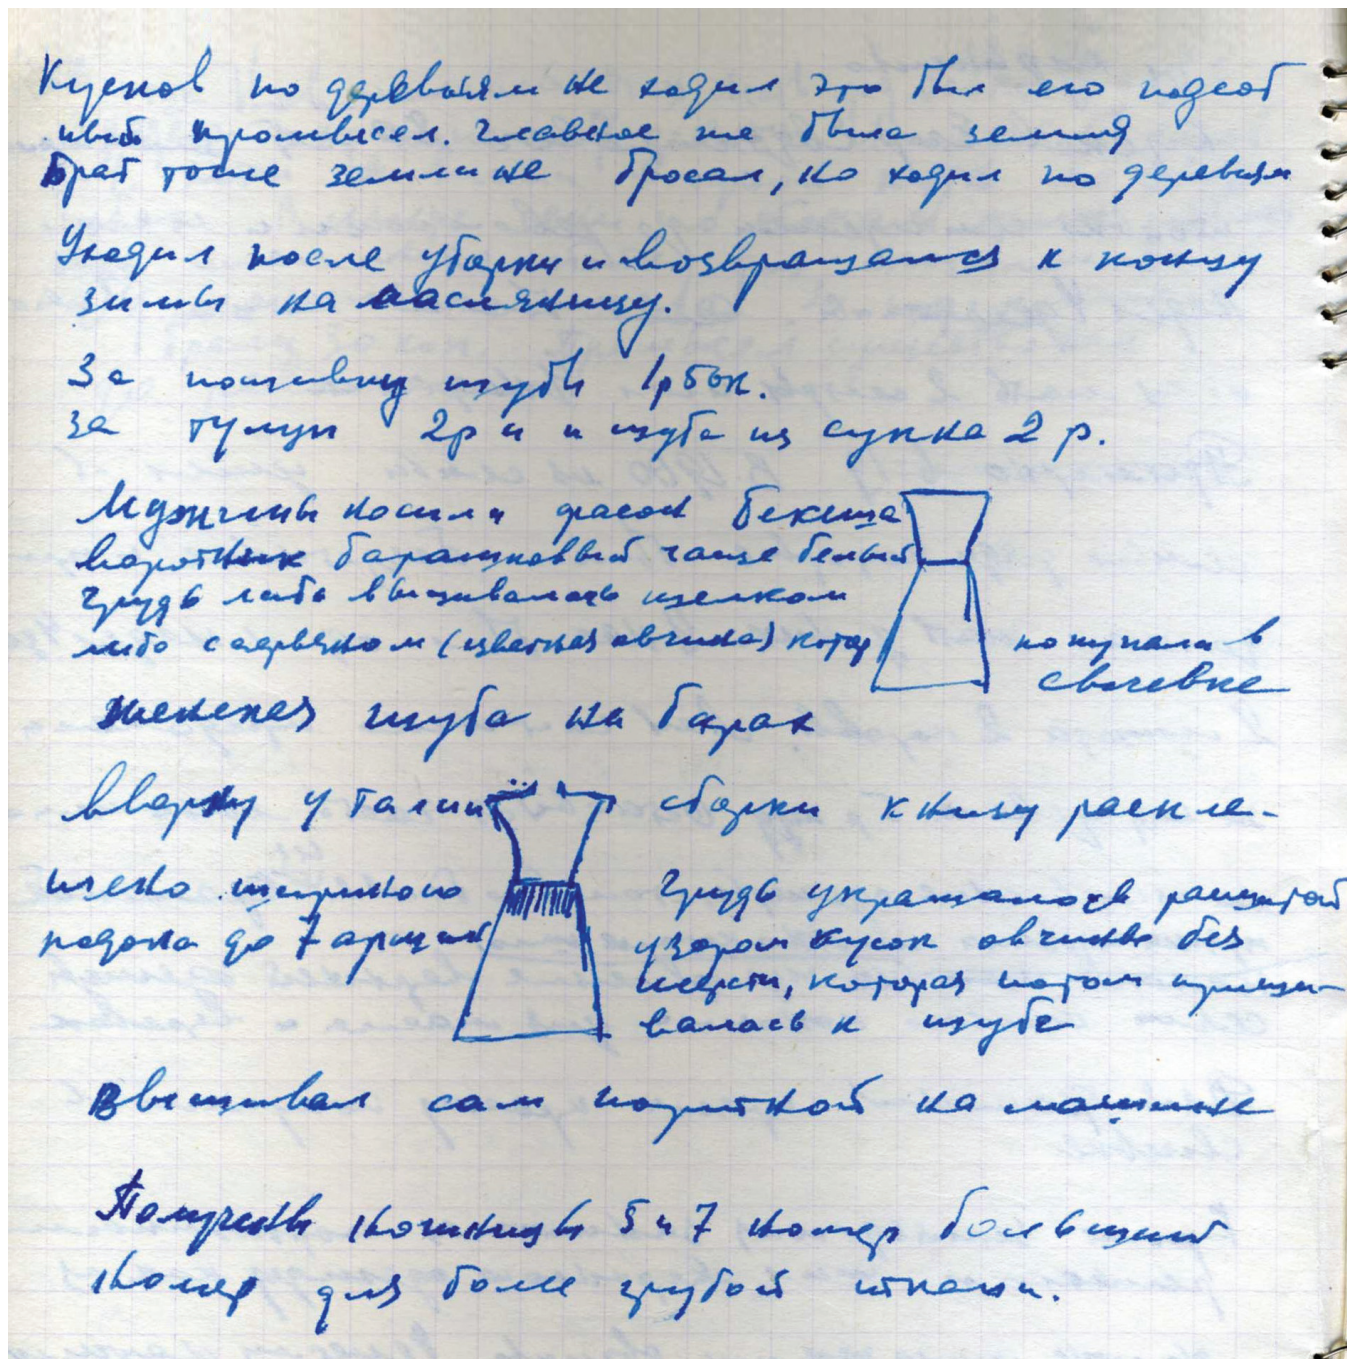 Кусков по деревням не ходил это был его подсоб
ный промысел. Главное же была земля
брат тоже земли не бросал, но ходил по деревням
Уходил после уборки и возвращался к концу
зимы на масляницу.
За пошивку шубы 1р 50к.
за тулуп 2р и и шуба из сукна 2 р.
Мужчины носили фасон бекеша
воротник барашковый чаще белый
грудь либо вышивалась шелком
либо (цветная овчина) котор покупали в
женская шуба на борах
вверху у талии сборки к низу раскле-
шено шириною Грудь украшалась расшитой
подола до 7 аршин узором кусок овчины без
шерсти, которая потом приши-
валась к шубе
вышивал сам на машине
ножницы 5 и 7 номер больший
номер для боле грубой ткани.